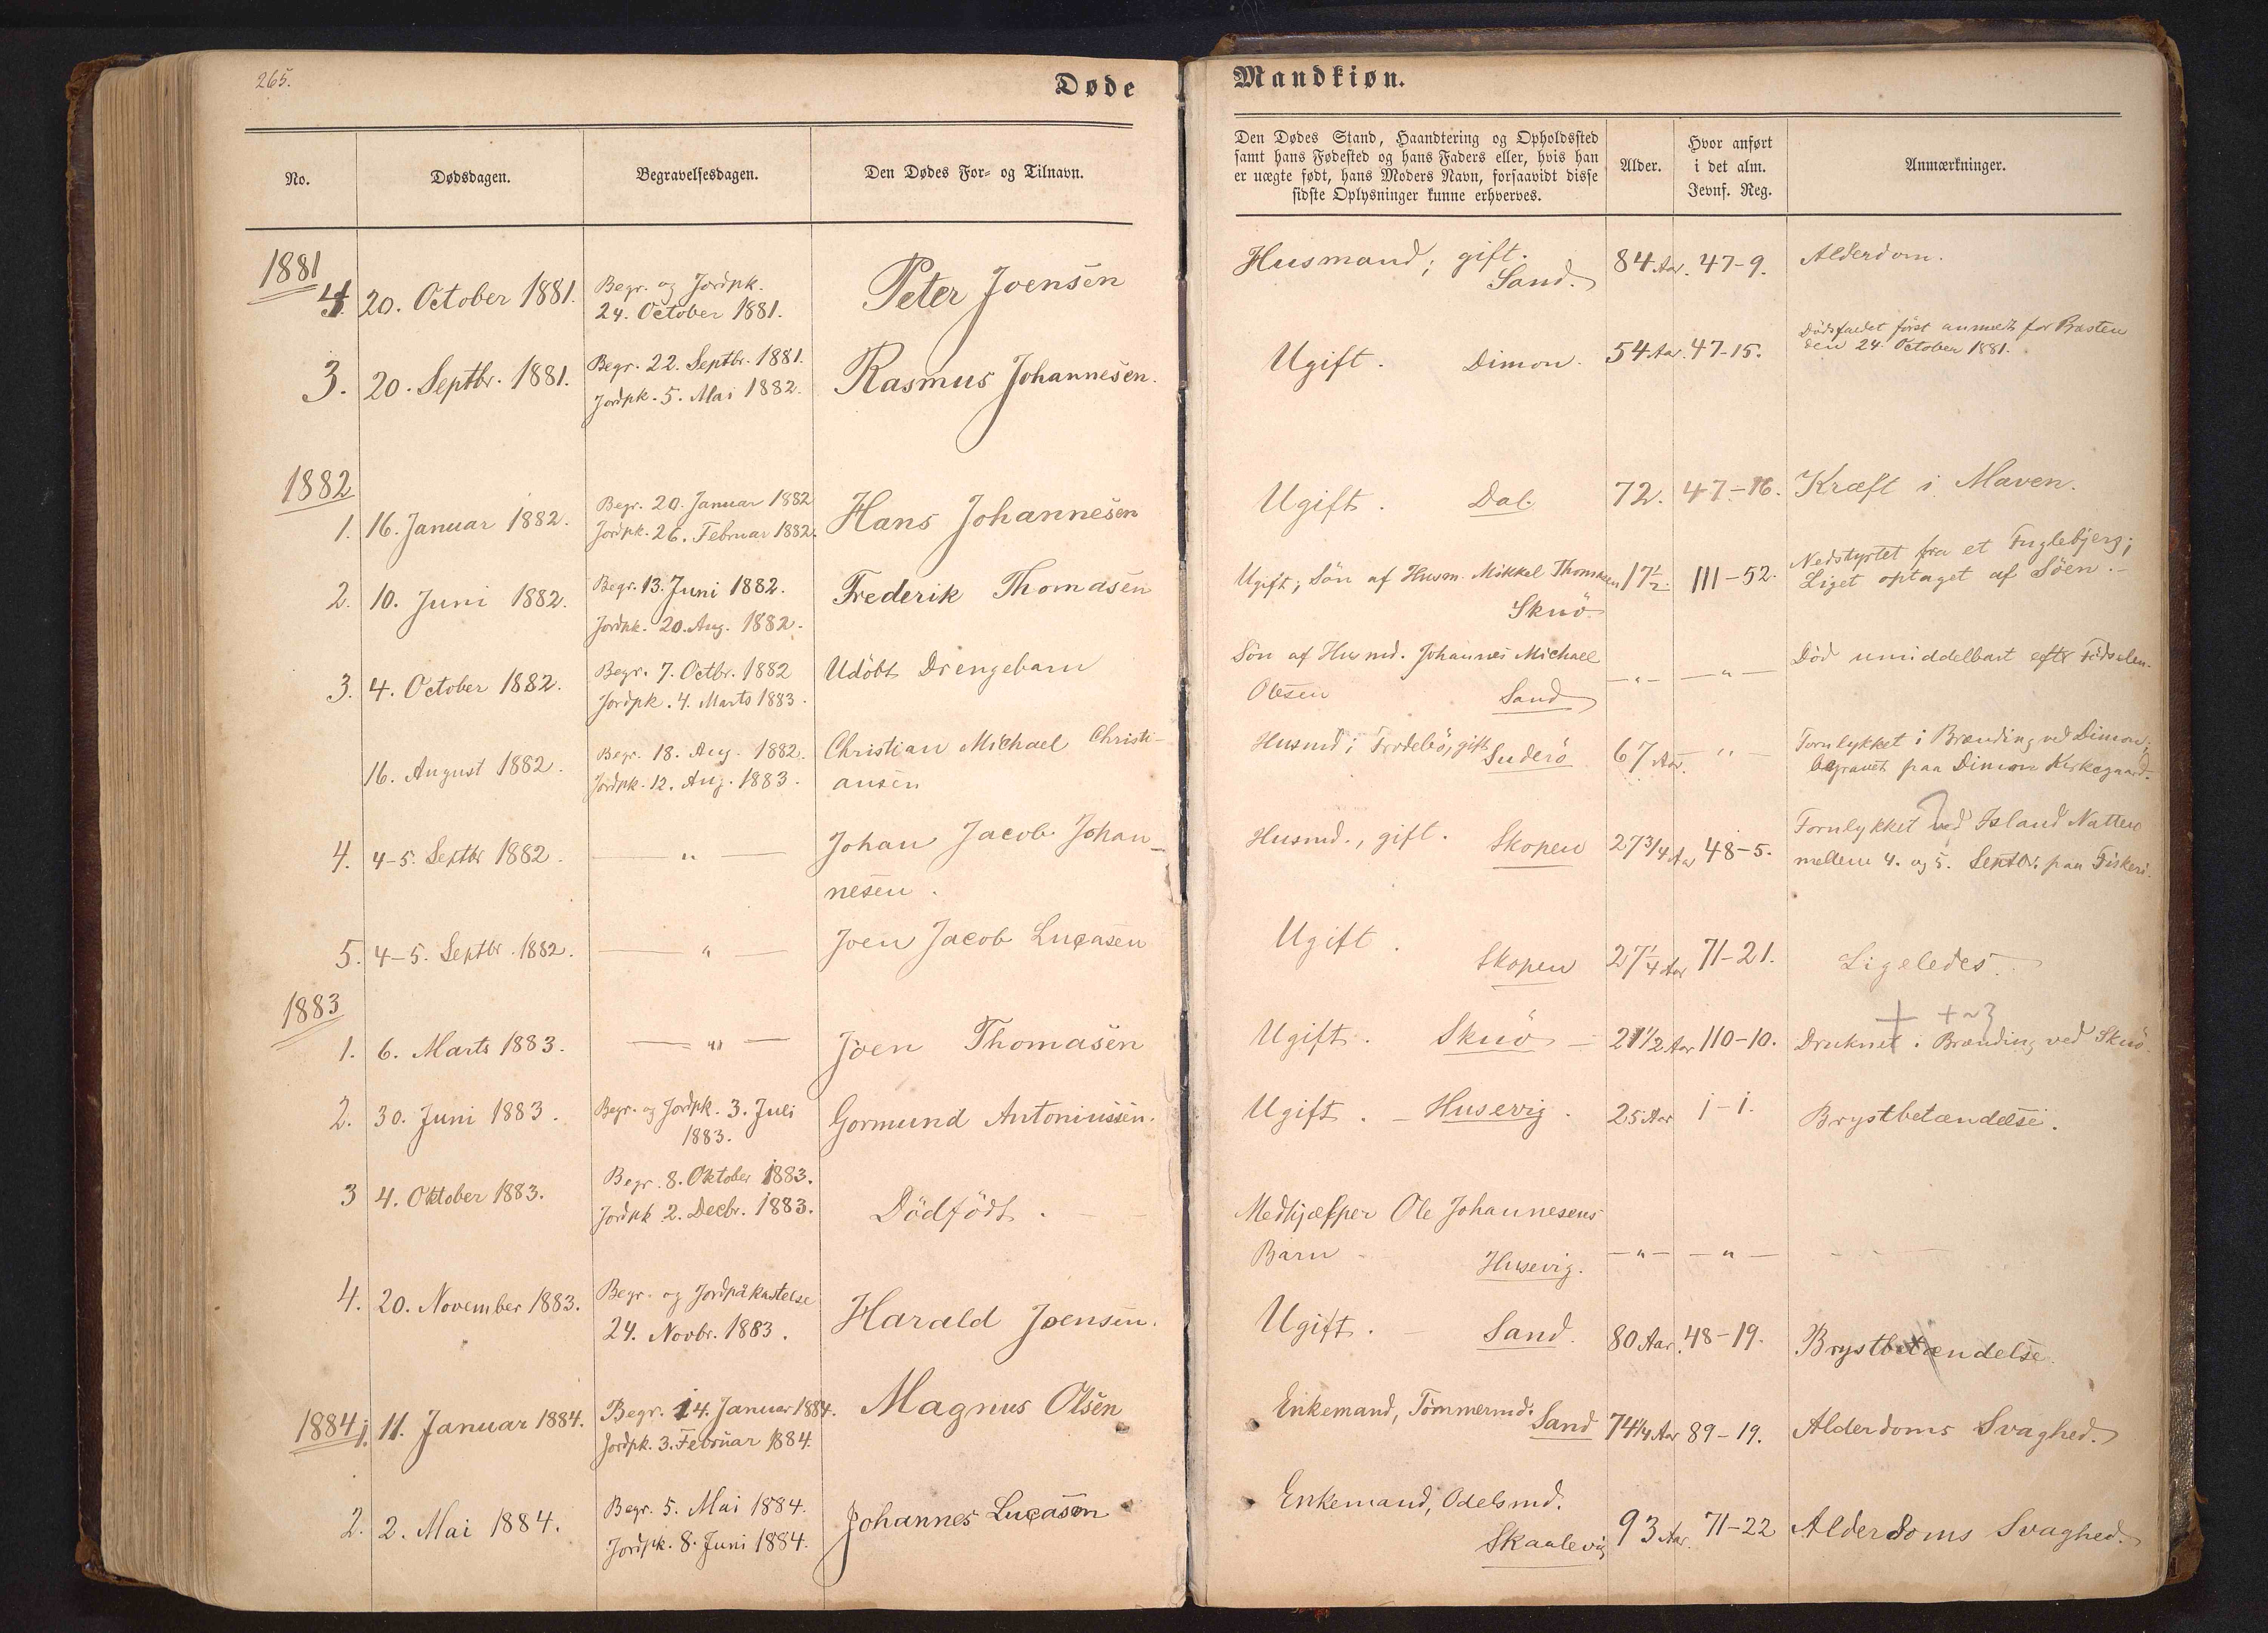 265.
Døde
Mandkiøn.
No.
Dødsdagen.
Begravelsesdagen.
Den Dødes For- og Tilnavn.
Den Dødes Stand, Haandtering og Opholdssted
samt hans Fødested og hans Faders eller, hvis han
er uægte født, hans Moders Navn, forsaavidt disse
sidste Oplysninger kunne erhverves.
Alder.
Hvor anført
i det alm.
Jevnf. Reg.
Anmærkninger.
1881
4. 20. October 1881. Begr. og Jordpk.
24. October 1881. Peter Joensen
Husmand; gift.
Sand. 84 Aar. 47-9. Alderdom.
3. 20. Septbr. 1881. Begr. 22. Septbr. 1881.
Jordpk. 5. Mai 1882. Rasmus Johannesen.
Ugift. Dimon. 54 Aar. 47-15. Dödsfaldet först anmeldt for Præsten
den 24. October 1881.
1882
1. 16. Januar 1882. Begr. 20. Januar 1882
Jordpk. 26. Februar 1882. Hans Johannesen
Ugift. Dal. 72. 47-16. Kræft i Maven.
2. 10. Juni 1882. Begr. 13. Juni 1882.
Jordpk. 20. Aug. 1882. Frederik Thomasen
Ugift; Sön af Husm. Mikkel Thomasen
Skuö 17½. 111-52. Nedstyrtet fra et Fuglebjerg;
Liget optaget af Söen.
3. 4. October 1882. Begr. 7. Octbr. 1882
Jordpk. 4. Marts 1883. Udöbt Drengebarn
Sön af Husmd. Johannes Michael
Olesen Sand -"- -"- Död umiddelbart efter Födselen.
16. August 1882. Begr. 18. Aug. 1882.
Jordpk. 12. Aug. 1883. Christian Michael Christi-
ansen
Husmd i Frodebö, gift
Suderö 67 Aar. -"- Forulykket i Brænding ved Dimon;
begravet paa Dimon Kirkegaard.
4. 4-5. Septbr 1882. -"- Johan Jacob Johan-
nesen.
Husmd., gift. Skopen 27 3/4 Aar 48-5. Forulykket ved Island Natten
mellem 4. og 5. Septbr. paa Fiskeri.
5. 4-5. Septbr. 1882. -"- Joen Jacob Lucasen
Ugift. Skopen 27 1/4 Aar 71-21. Ligeledes.
1883
1. 6. Marts 1883. -"- Joen Thomasen
Ugift. Skuö - 21 1/2 Aar 110-10. Druknet i Brænding ved Skuö.
2. 30. Juni 1883. Begr. og Jordpk. 3. Juli
1883. Gormund Antoniussen.
Ugift. - Husevig. 25 Aar 1-1. Brystbetændelse.
3 4. Oktober 1883. Begr. 8. Oktober 1883.
Jordpk 2. Decbr. 1883. Dödfödt.
Medhjælper Ole Johannesens
Barn - Husevig. -"- -"-
4. 20. November 1883. Begr. og Jordpåkastelse
24. Novbr. 1883. Harald Joensen.
Ugift. - Sand. 80 Aar. 48-19. Brystbetændelse.
1884 1. 11. Januar 1884. Begr. 14. Januar 1884.
Jordpk. 3. Februar 1884. Magnus Olsen
Enkemand, Tömmermd.
Sand 74 1/4 Aar 89-19. Alderdoms Svaghed.
2. 2. Mai 1884. Begr. 5. Mai 1884.
Jordpk. 8. Juni 1884. Johannes Lucasen
Enkemand, Odelsmd.
Skaalevig 93 Aar. 71-22 Alderdoms Svaghed.